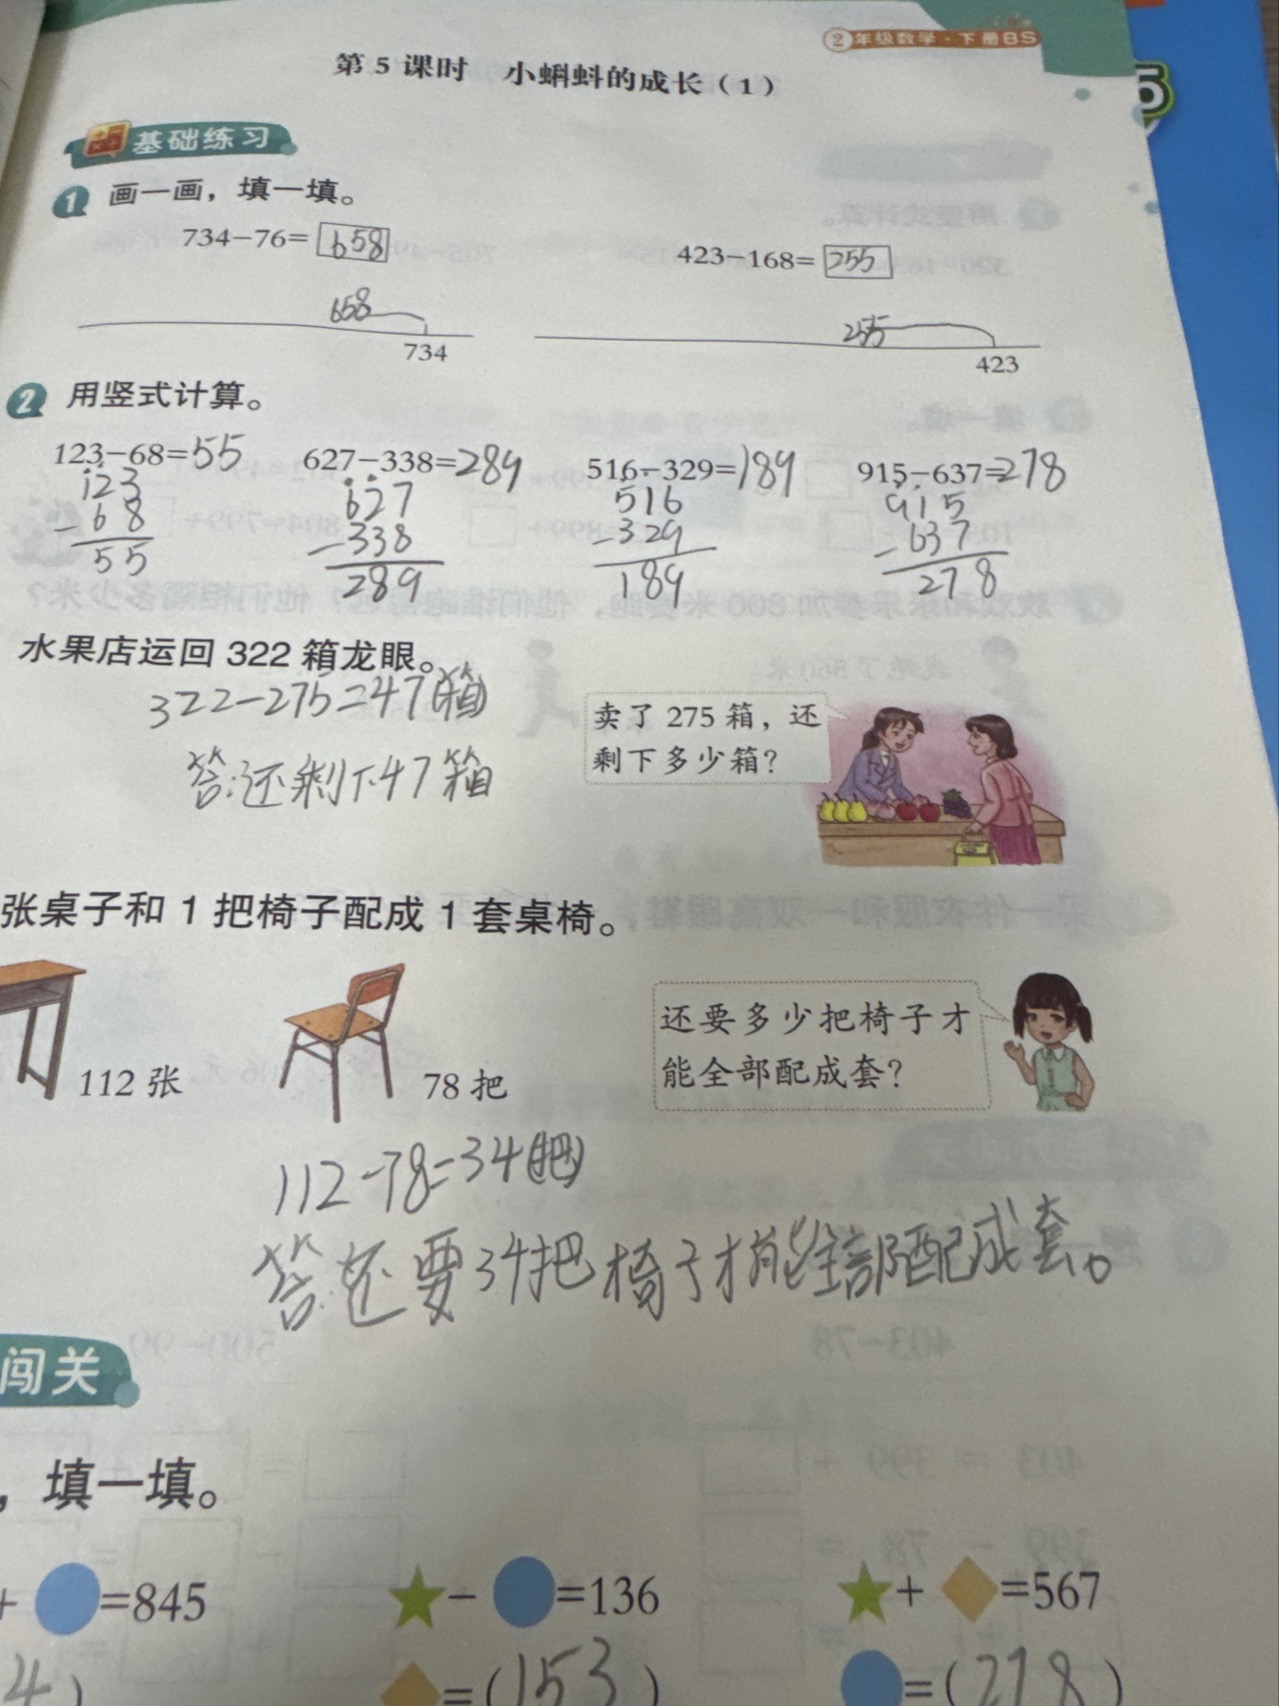 2年级数学·下册BS
第5课时 小蝌蚪的成长（1）
基础练习
1 画一画，填一填。
734－76＝658
423－168＝255
658
255
734
423
2 用竖式计算。
123－68＝55 627－338＝289 516－329＝189 915－637＝278
123 627 516 915
－68 －338 －329 －637
55 289 189 278
水果店运回322箱龙眼。
322－275＝47(箱)
答:还剩下47箱
卖了275箱，还
剩下多少箱？
张桌子和1把椅子配成1套桌椅。
还要多少把椅子才
能全部配成套？
112张
78把
112－78＝34(把)
答:还要34把椅子才能全部配成套。
闯关
，填一填。
＋ ＝845 － ＝136 ＋ ＝567
4） ＝(153) ＝(278)